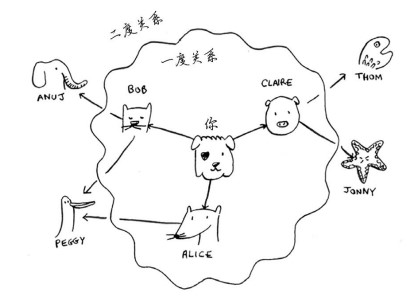 二度关系
一度关系
ANUJ
BOB
CLAIRE
THOM
你
JONNY
PEGGY
ALICE